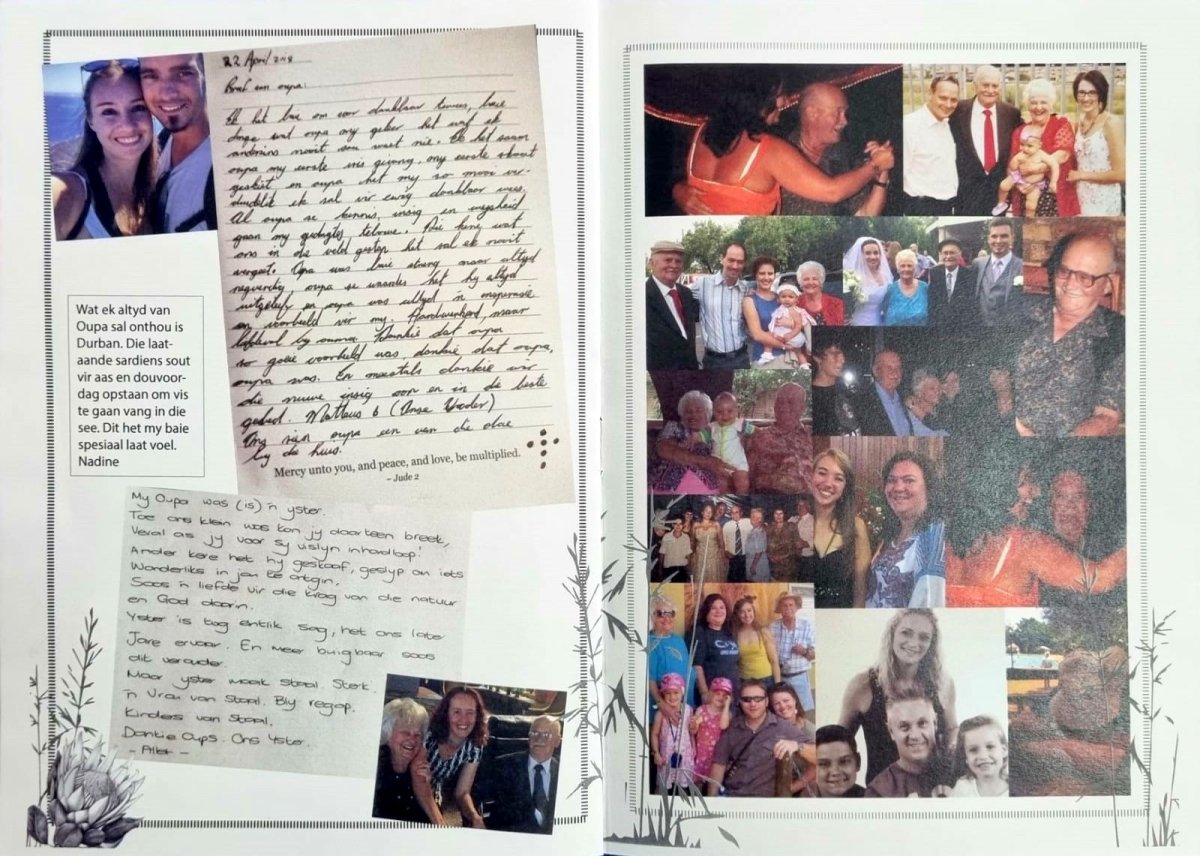 22 April 2018
Brief aan oupa:
Ek het baie om voor dankbaar te wees, baie
dinge wat oupa my geleer het wat ek
andersins nooit sou weet nie. Ek het saam
oupa my eerste vis gevang, my eerste skoot
geskiet en oupa het my so mooi
ek sal vir ewig dankbaar wees.
Al oupa se kennis, insig en wysheid
gaan my gedagtes Die kere wat
ons in die veld gestap het sal ek nooit
vergeet. Oupa was baie streng maar altyd
regverdig, oupa se waardes het hy altyd
uitgeleef en oupa was altyd 'n inspirasie
en voorbeeld vir my. Hardwerkend, maar
by ouma. Dankie dat oupa
so goeie voorbeeld was, dankie dat oupa,
oupa was. En meestals dankie vir
die nuwe insig oor en in die beste
gebed. Matteus 6 (Onse Vader)
Ons sien oupa een van die dae
by die huis.
Mercy unto you, and peace, and love, be multiplied.
~ Jude 2
Wat ek altyd van
Oupa sal onthou is
Durban. Die laat-
aande sardiens sout
vir aas en douvoor-
dag opstaan om vis
te gaan vang in die
see. Dit het my baie
spesiaal laat voel.
Nadine
My Oupa was (is) 'n yster.
Toe ons klein was kon jy daarteen breek,
Veral as jy voor sy vislyn inhardloop!
Ander kere het hy geskaaf, geslyp om iets
Wonderliks in jou te
Soos 'n liefde vir die krag van die natuur
en God daarin.
Yster is tog eintlik sag, het ons later
Jare ervaar. En meer buigbaar soos
dit verouder.
Maar yster maak staal. Sterk.
'n Vrou van Staal. Bly regop.
Kinders van Staal.
Dankie Oups. Ons Yster.